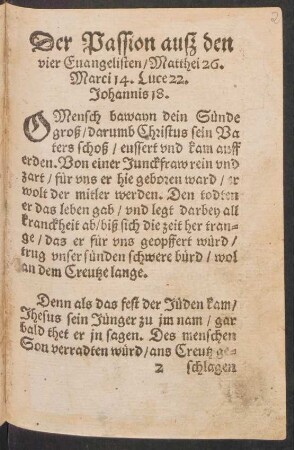 2
Der Passion ausz den
vier Euangelisten/Matthei 26.
Marci 14. Luce 22.
Johannis 18.
O Mensch bawayn dein Sünde
groß/darumb Christus sein Va
ters schoß/eussert vnd kam auff
erden. Von einer Junckfraw rein vnd
zart/für vns er hie geboren ward/er
wolt der mitler werden. Den todten
er das leben gab/vnd legt darbey all
kranckheit ab/biß sich die zeit her tran-
ge/das er für vns geopffert würd/
trug vnser sünden schwere bürd/wol
an dem Creutze lange.
Denn als das fest der Jüden kam/
Jhesus sein Jünger zu jm nam/gar
bald thet er jn sagen. Des menschen
Son verradten würd/ans Creutz ge-
2 schlagen